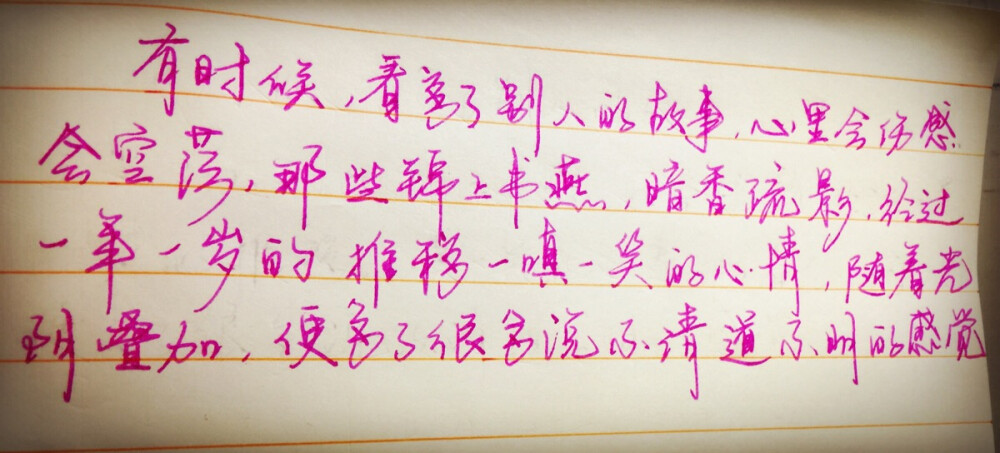 有时候,看多了别人的故事,心里会伤感
会空荡,那些锦上书燕,暗香疏影,经过
一年一岁的推移一嗔一笑的心情,随着光
阴叠加,便多了很多说不清道不明的感觉